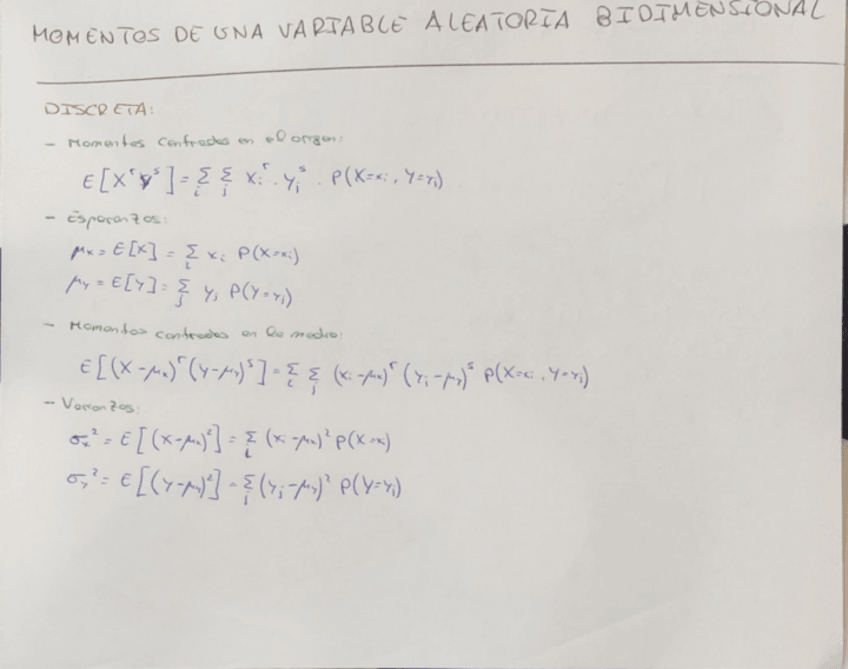 MOMENTOS DE UNA VARIABLE ALEATORIA BIDIMENSIONAL
DISCRETA:
- Momentos centrados en el origen:
E[XʳYˢ] = Σᵢ Σⱼ xᵢʳ · yⱼˢ · P(X=xᵢ, Y=yⱼ)
- Esperanzas:
μₓ = E[X] = Σᵢ xᵢ P(X=xᵢ)
μᵧ = E[Y] = Σⱼ yⱼ P(Y=yⱼ)
- Momentos centrados en la media:
E[(X-μₓ)ʳ (Y-μᵧ)ˢ] = Σᵢ Σⱼ (xᵢ-μₓ)ʳ (yⱼ-μᵧ)ˢ P(X=xᵢ, Y=yⱼ)
- Varianzas:
σₓ² = E[(X-μₓ)²] = Σᵢ (xᵢ-μₓ)² P(X=xᵢ)
σᵧ² = E[(Y-μᵧ)²] = Σⱼ (yⱼ-μᵧ)² P(Y=yⱼ)